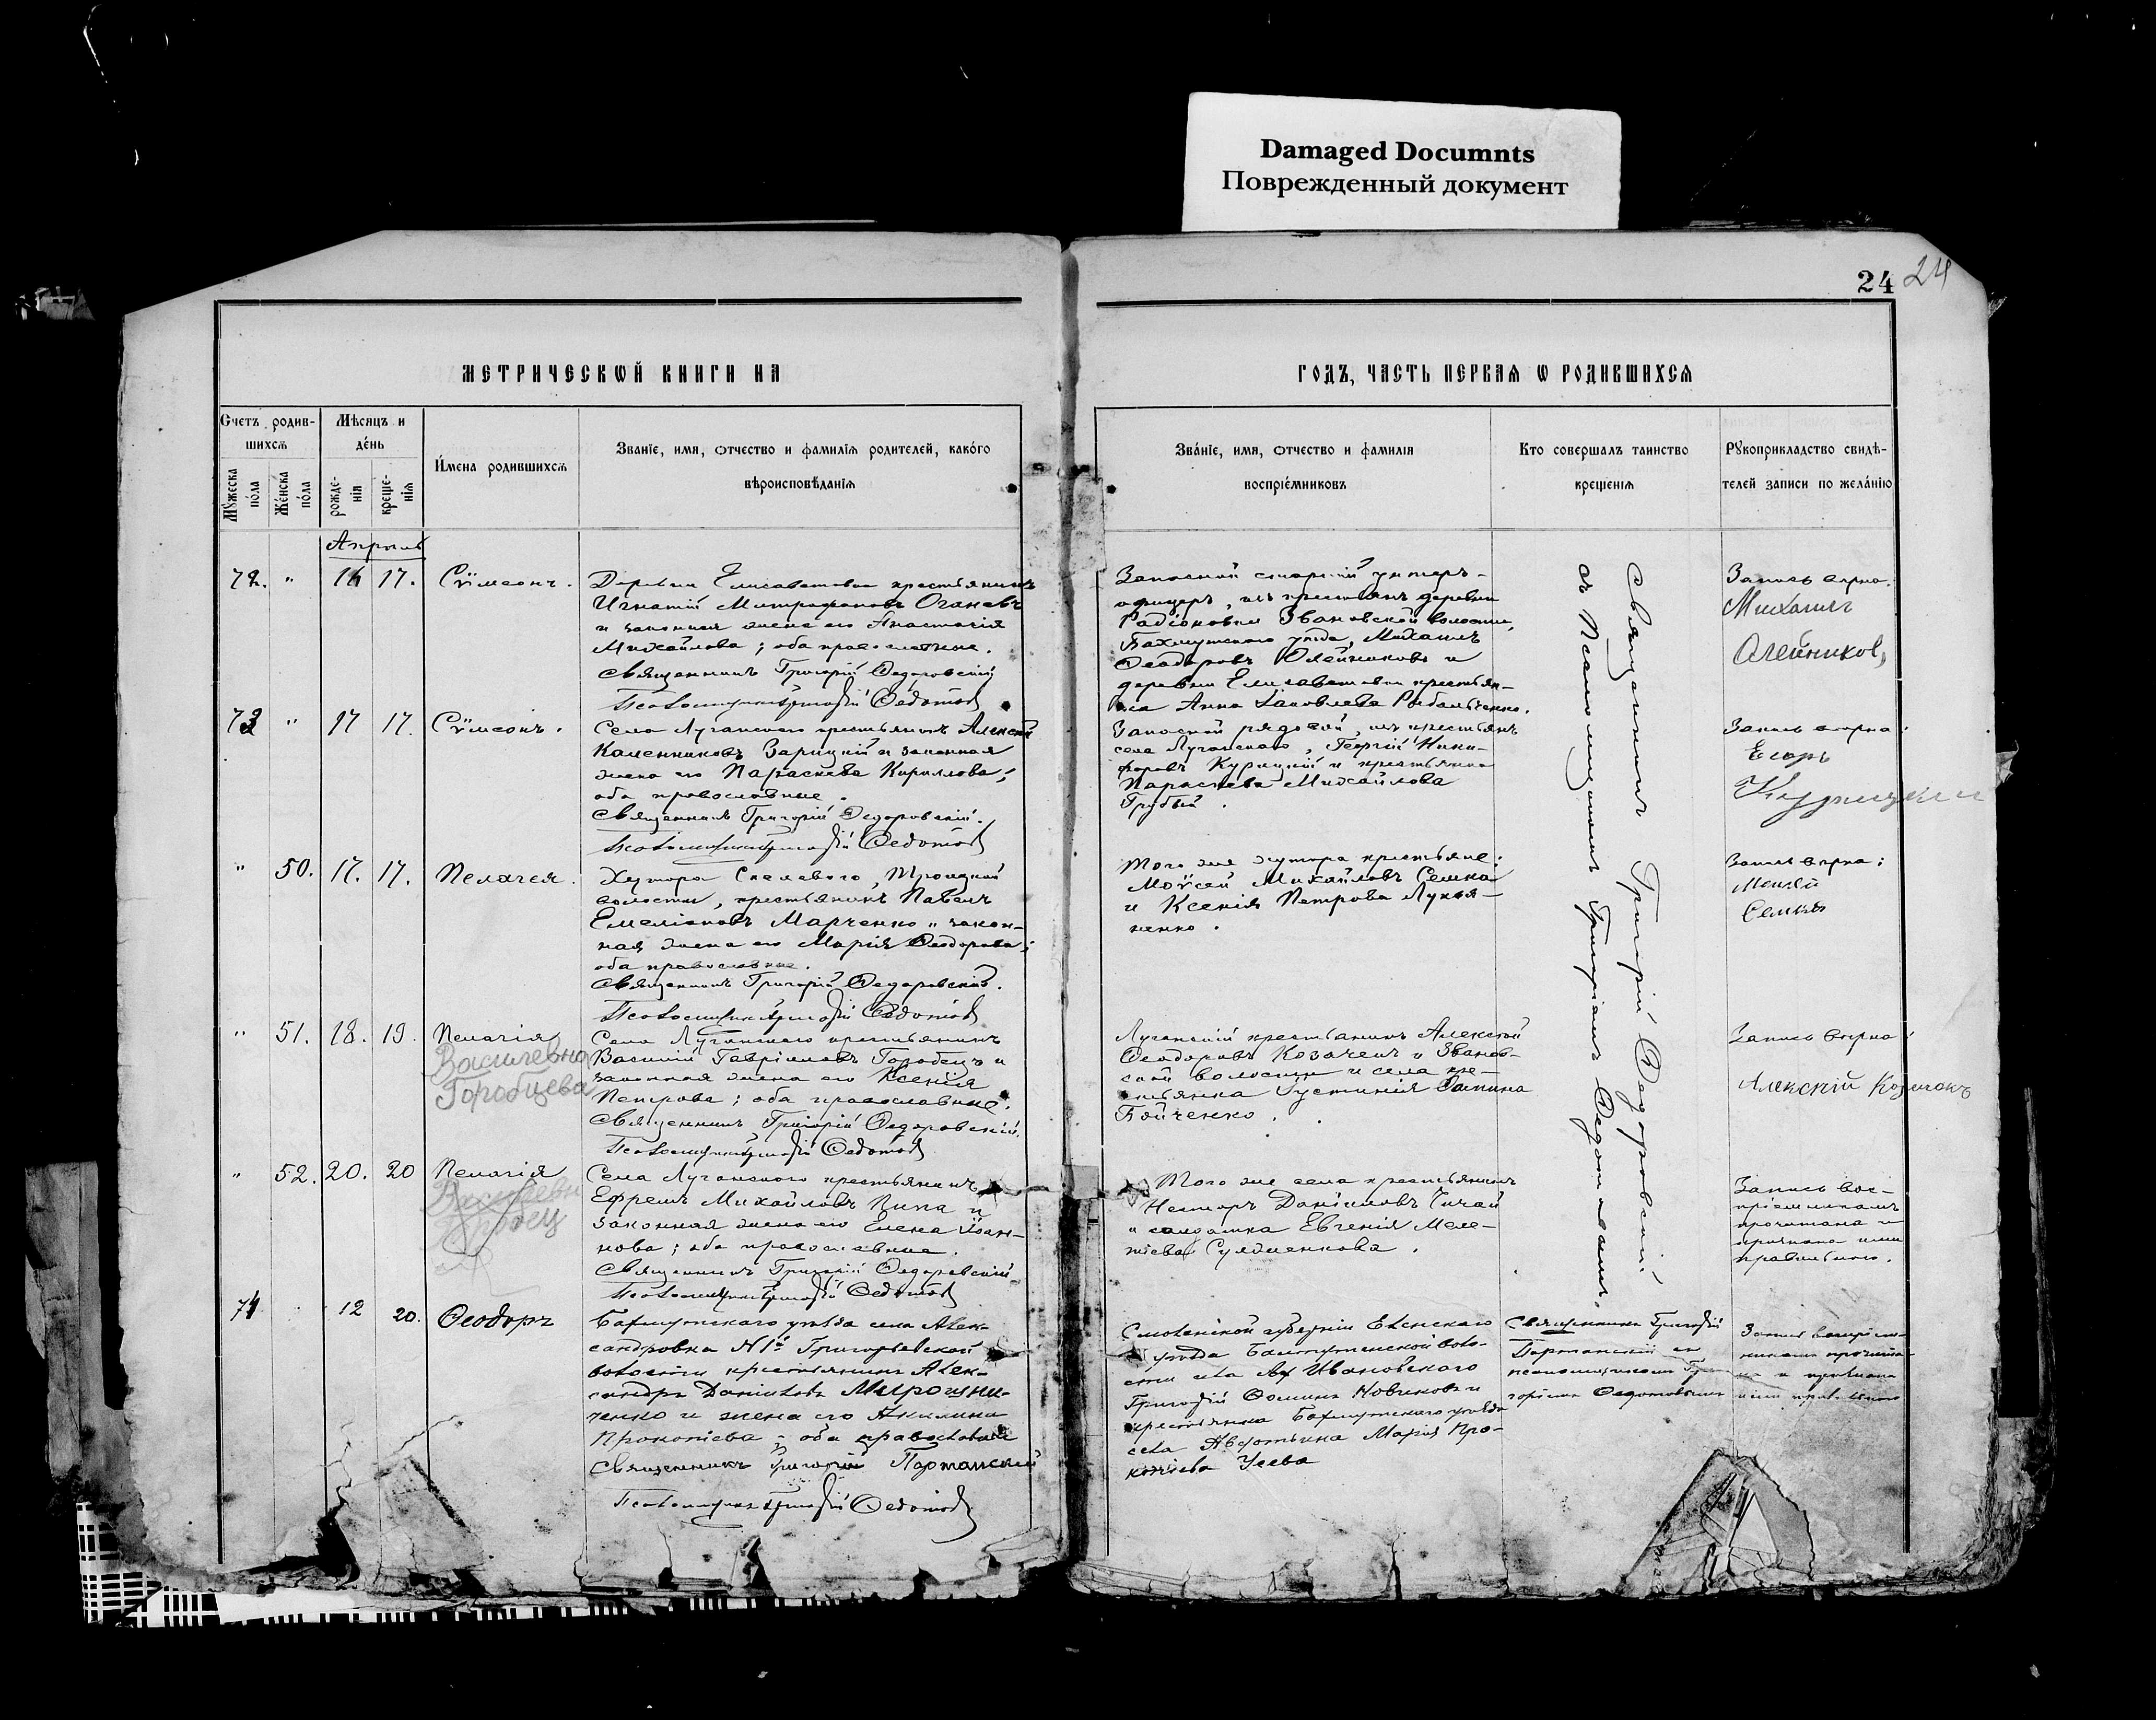 Damaged Documnts
Поврежденный документ
24 24
МЕТРИЧЕСКѠЙ КНИГИ НА
ГОДЪ, ЧАСТЬ ПЕРВАѦ Ѡ РОДИВШИХСѦ
Счетъ родив-
шихсѧ
Мꙋжеска пола
Женска пола
Мѣсяцъ и
де́нь
рожде-
нія
креще-
нія
И́мена родившихсѧ
Званіе, имя, отчество и фамилія родителей, како́го
вѣроисповѣданіѧ
Зва́ніе, имя, отчество и фамилія
воспріе́мниковъ
Кто совершалъ таинство
крещеніѧ
Рꙋкоприкладство свидѣ-
телей записи по жела́нію
Апрѣль
72. " 16 17. Сѷмеонъ.
Деревни Елисаветовки крестьянинъ
Игнатій Митрофановъ
и законная жена его Анастасія
Михайлова; оба православные.
Священникъ Григорій Федоровскій
Псаломщикъ Григорій Федотов
Запасной старшій унтеръ-
офицеръ, изъ крестьянъ деревни
Радіоновки Звановской волости,
Бахмутскаго уѣзда, Михаилъ
Ѳеодоровъ Олейниковъ и
деревни Елисаветовки крестьян-
ка Анна Іаковлева Рыбальченко.
Запись вѣрна:
Михаилъ
Олейников
Священникъ Григорій Федоровскій
съ Псаломщикомъ Григоріемъ Федотовымъ.
73 " 17 17. Сѷмеонъ.
Села Луганскаго крестьянинъ Алексѣй
Зарицкій и законная
жена его Параскева Кириллова;
оба православные.
Священникъ Григорій Федоровскій.
Псаломщикъ Григорій Федотов
Запасной рядовой, изъ крестьянъ
села Луганскаго, Георгій Ники-
форовъ Курицкій и крестьянка
Параскева Михайлова
Грубый.
Запись вѣрна:
Егоръ
" 50. 17. 17. Пелагея.
Хутора Скелеваго, Троицкой
волости, крестьянинъ Павелъ
Емеліановъ Марченко и закон-
ная жена его Марія Ѳеодорова;
оба православные.
Священникъ Григорій Федоровскій.
Псаломщикъ Григорій Федотов
Того же хутора крестьяне:
Моѷсей Михайловъ Семка
и Ксенія Петрова Лукья-
ненко.
Запись вѣрна:
" 51. 18. 19. Пелагія
Василевна
Горобцева
Села Луганскаго крестьянинъ
Василій Гавріиловъ Горобецъ и
законная жена его Ксенія
Петрова; оба православные.
Священникъ Григорій Федоровскій.
Псаломщикъ Григорій Федотов
Луганскій крестьянинъ Алексѣй
Ѳеодоровъ Козаченъ и Званов-
ской волости и села кре-
стьянка Іустинія
Бойченко.
Запись вѣрна:
Алексѣй
" 52. 20. 20 Пелагія
Села Луганскаго крестьянинъ
Ефремъ Михайловъ Пипа и
законная жена его Елена Іоан-
нова; оба православные.
Священникъ Григорій Федоровскій
Псаломщикъ Григорій Федотов
Того же села крестьянинъ
Несторъ Даніиловъ Чичай
и солдатка Евгенія Меле-
тіева Сулименкова.
Запись вос-
пріемникамъ
прочитана и
признана ими
правильною.
74 12 20. Ѳеодоръ
Бахмутскаго уѣзда села Алек-
сандровка №1й Григорьевской
волости крестьянинъ Алек-
сандръ Даніиловъ
ченко и жена его Акилина
Прокопіева; оба православные
Священникъ Григорій Портанскій
Псаломщикъ Григорій Федотов
Смоленской губерніи Ельнскаго
уѣзда волос-
ти села Ивановскаго
Григорій Ѳоминъ Новиковъ и
крестьянка Бахмутскаго уѣзда
села Авдотьина Марія Про-
копіева Усева
Священникъ Григорій
Портанскій съ
псаломщикомъ Гри-
горіемъ Федотовымъ
Запись воспріем-
никамъ прочита-
на и признана
ими правильною